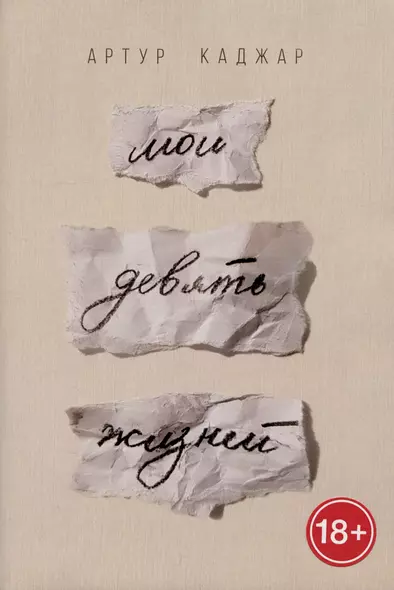 АРТУР КАДЖАР
мои
девять
жизней
18+